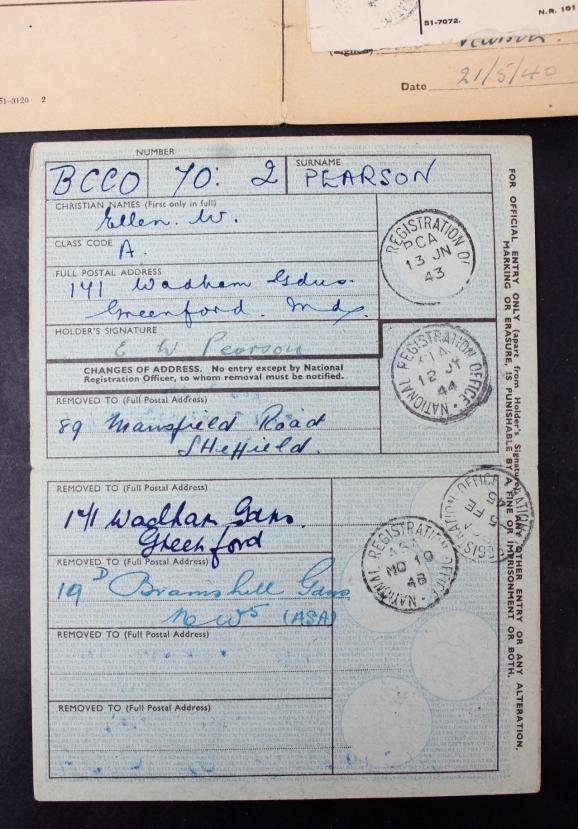 N.R. 101
51-7072.
(Signed)
Date 21/5/40
51-3120 2
NUMBER
SURNAME
BCCO 70: 2 PEARSON
CHRISTIAN NAMES (First only in full)
Ellen. W.
CLASS CODE
A.
FULL POSTAL ADDRESS
141 Wadham Gdns.
Greenford. Mdx.
HOLDER'S SIGNATURE
E W Pearson
CHANGES OF ADDRESS. No entry except by National
Registration Officer, to whom removal must be notified.
REMOVED TO (Full Postal Address)
89 Mansfield Road
Sheffield.
REMOVED TO (Full Postal Address)
141 Wadham Gdns.
Greenford
REMOVED TO (Full Postal Address)
19D Bramshill Gdns
NW5 (ASA)
REMOVED TO (Full Postal Address)
REMOVED TO (Full Postal Address)
REGISTRATION OF
PCA
13 JN
43
NATIONAL REGISTRATION OFFICE
12 JY
44
NATIONAL REGISTRATION OFFICE
5 FE
45
NATIONAL REGISTRATION
NO 19
48
FOR OFFICIAL ENTRY ONLY (apart from Holder's Signature). ANY OTHER ENTRY OR ANY ALTERATION,
MARKING OR ERASURE, IS PUNISHABLE BY A FINE OR IMPRISONMENT OR BOTH.